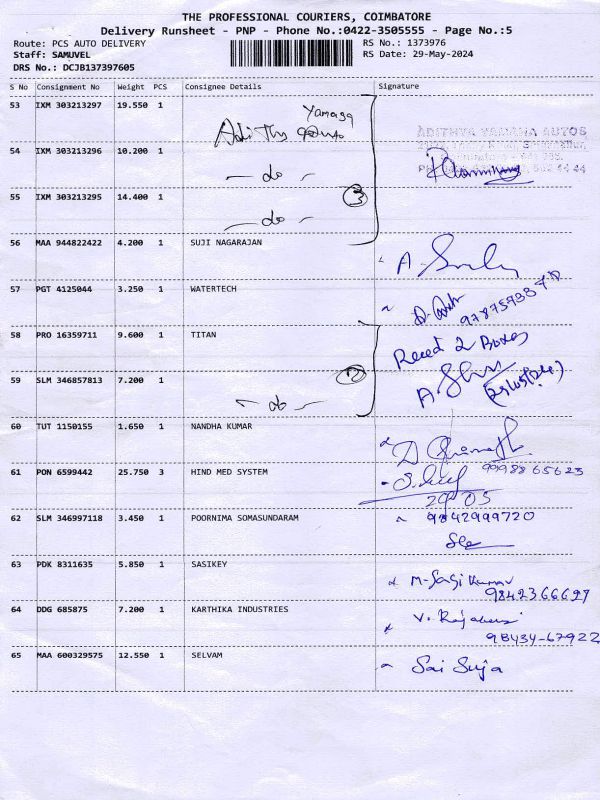 THE PROFESSIONAL COURIERS, COIMBATORE
Delivery Runsheet - PNP - Phone No.:0422-3505555 - Page No.:5
Route: PCS AUTO DELIVERY RS No.: 1373976
Staff: SAMUVEL RS Date: 29-May-2024
DRS No.: DCJB137397605
S No Consignment No Weight PCS Consignee Details Signature
53 IXM 303213297 19.550 1 Yamaga
ADITHYA YAMAHA AUTOS
54 IXM 303213296 10.200 1 - do -
55 IXM 303213295 14.400 1 - do - 3
56 MAA 944822422 4.200 1 SUJI NAGARAJAN
57 PGT 4125044 3.250 1 WATERTECH
58 PRO 16359711 9.600 1 TITAN Recd 2 Boxes
59 SLM 346857813 7.200 1 - do - 2 (29/05/24.)
60 TUT 1150155 1.650 1 NANDHA KUMAR
9998865623
61 PON 6599442 25.750 3 HIND MED SYSTEM
29 05
62 SLM 346997118 3.450 1 POORNIMA SOMASUNDARAM 9842999720
63 PDK 8311635 5.850 1 SASIKEY M-Sasi Kumar
9842366627
64 DDG 685875 7.200 1 KARTHIKA INDUSTRIES
98434-67922
65 MAA 600329575 12.550 1 SELVAM Sai Suja